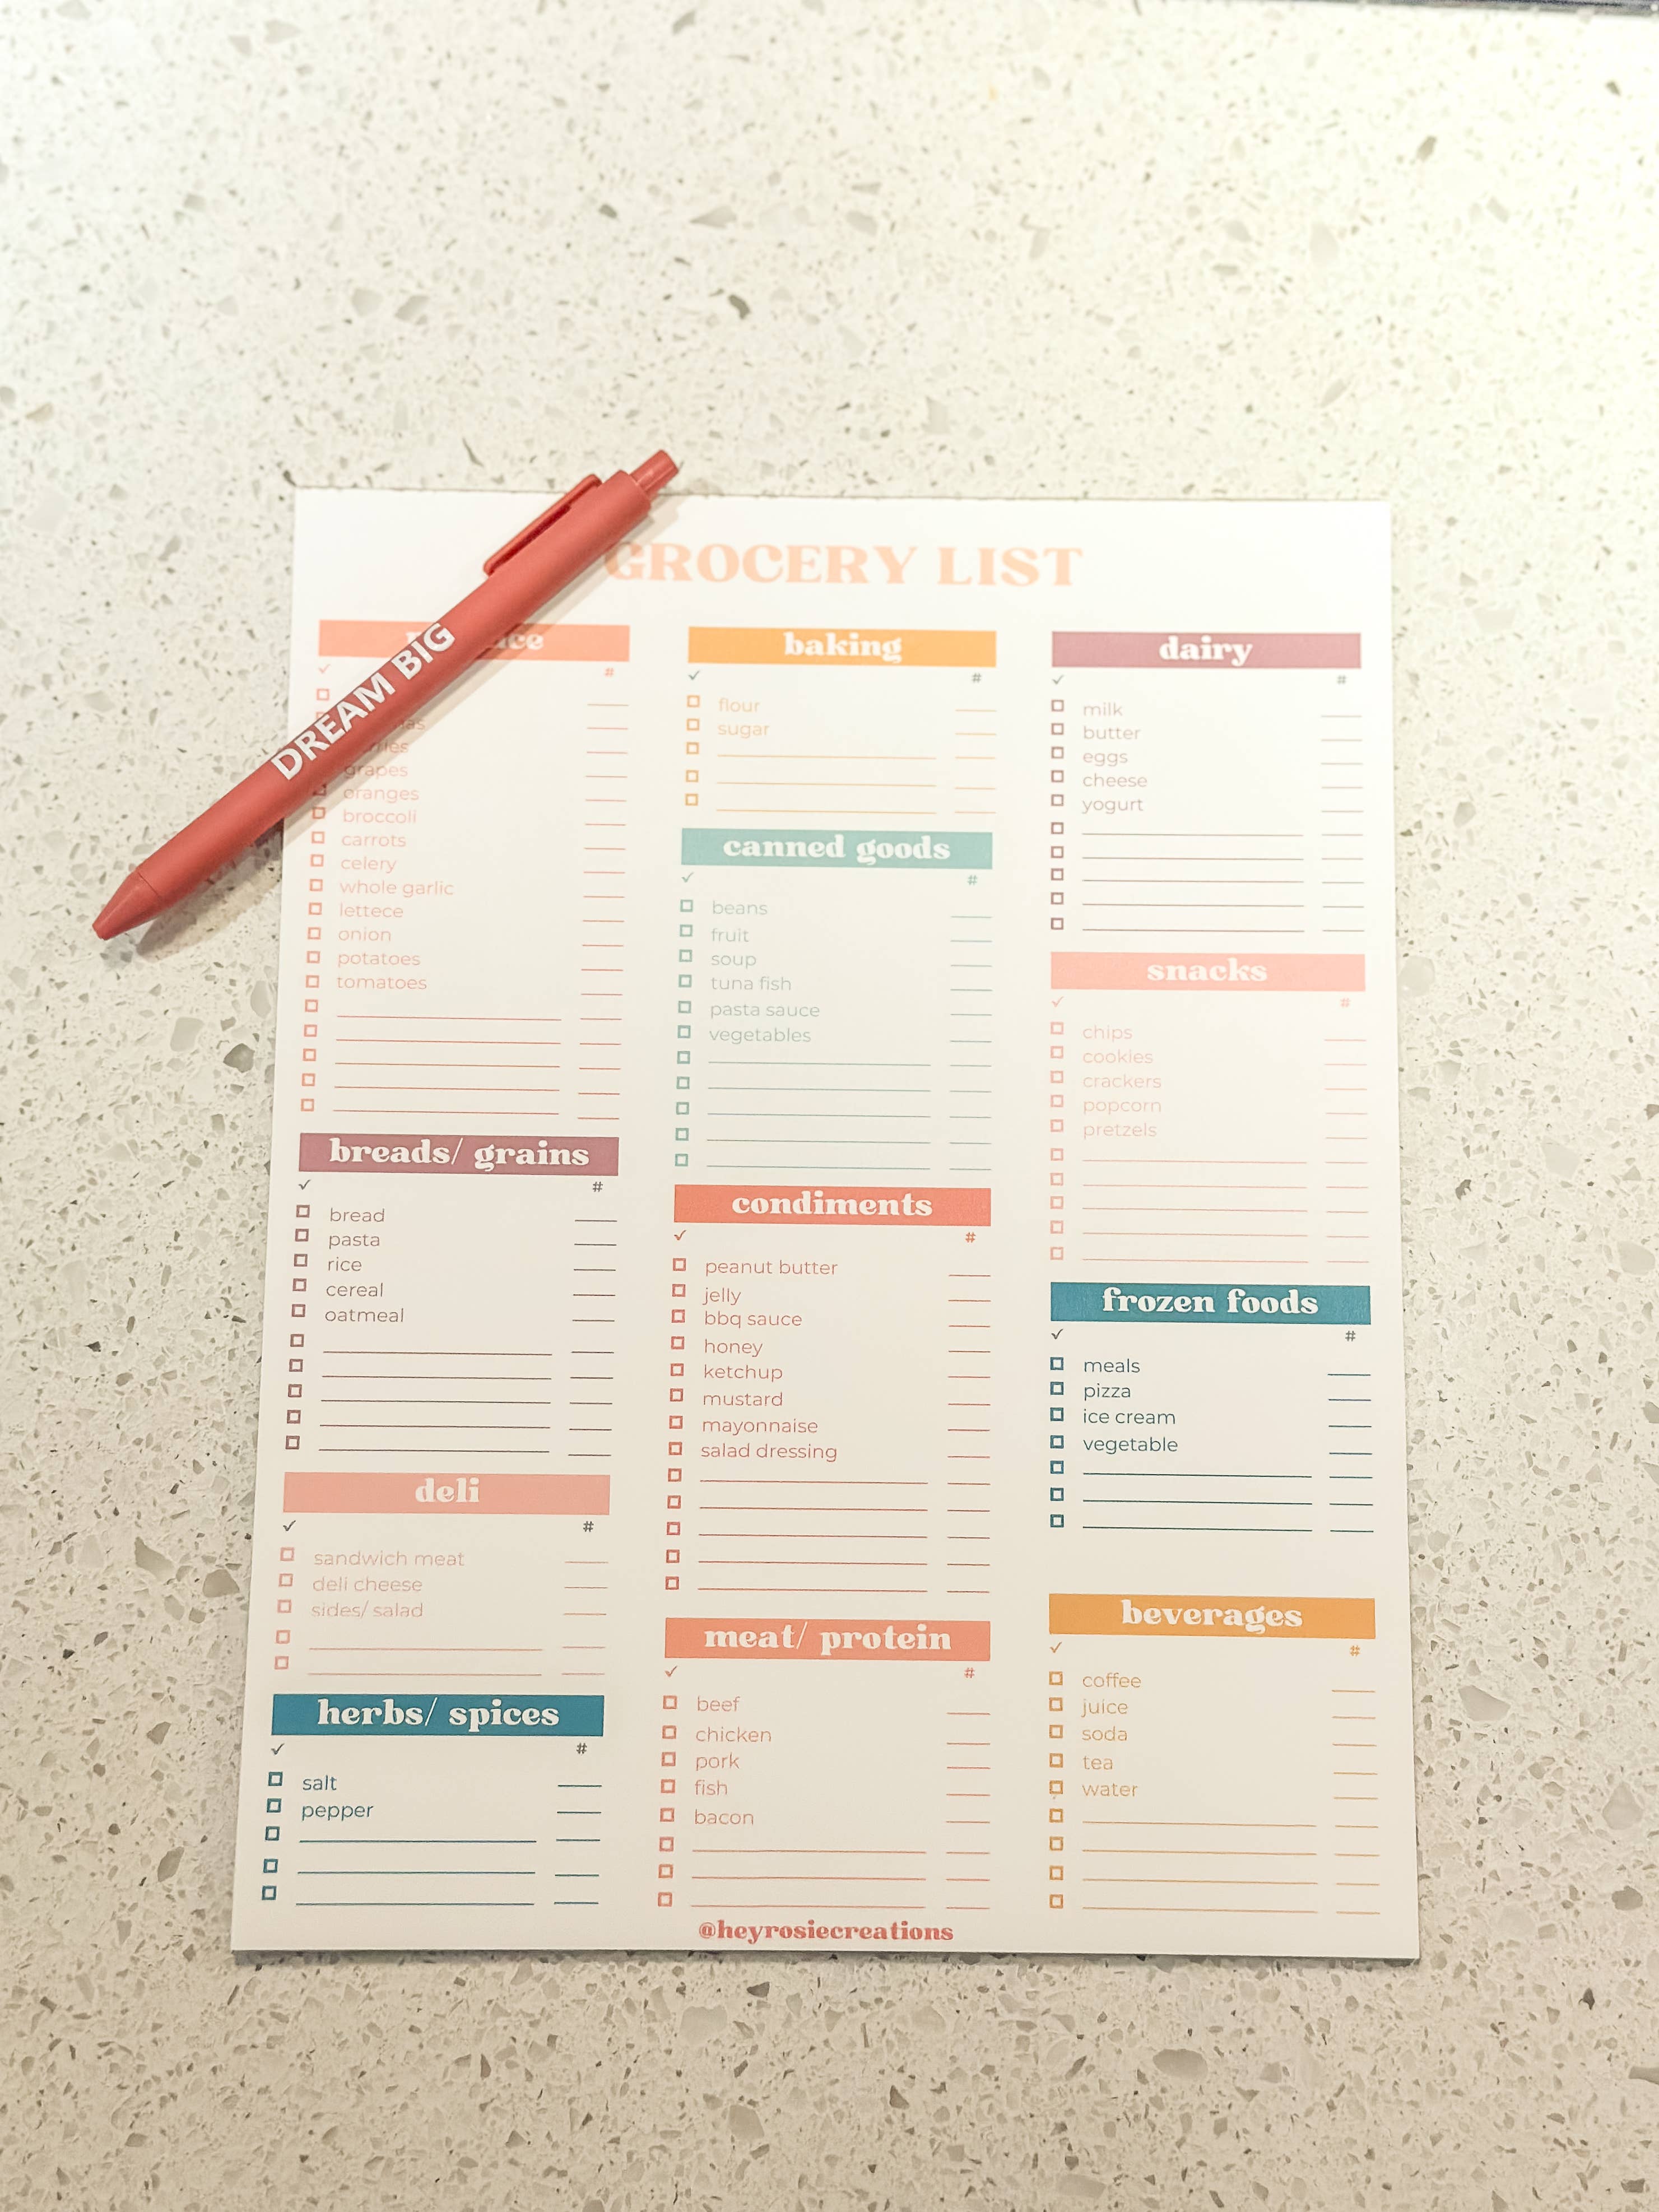 GROCERY LIST
DREAM BIG
✓ #
grapes
oranges
broccoli
carrots
celery
whole garlic
lettece
onion
potatoes
tomatoes
breads/ grains
✓ #
bread
pasta
rice
cereal
oatmeal
deli
✓ #
sandwich meat
deli cheese
sides/ salad
herbs/ spices
✓ #
salt
pepper
baking
✓ #
flour
sugar
canned goods
✓ #
beans
fruit
soup
tuna fish
pasta sauce
vegetables
condiments
✓ #
peanut butter
jelly
bbq sauce
honey
ketchup
mustard
mayonnaise
salad dressing
meat/ protein
✓ #
beef
chicken
pork
fish
bacon
dairy
✓ #
milk
butter
eggs
cheese
yogurt
snacks
✓ #
chips
cookies
crackers
popcorn
pretzels
frozen foods
✓ #
meals
pizza
ice cream
vegetable
beverages
✓ #
coffee
juice
soda
tea
water
@heyrosiecreations